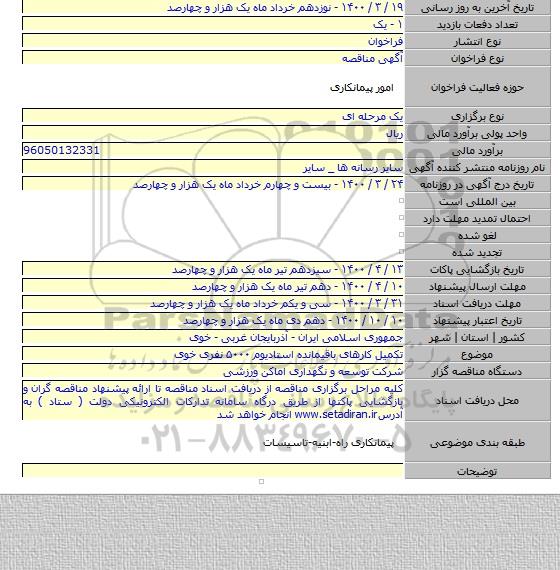 تاریخ آخرین به روز رسانی ۱۹ / ۳ / ۱۴۰۰ - نوزدهم خرداد ماه یک هزار و چهارصد
تعداد دفعات بازدید ۱ - یک
نوع انتشار فراخوان
نوع فراخوان آگهی مناقصه
حوزه فعالیت فراخوان امور پیمانکاری
نوع برگزاری یک مرحله ای
واحد پولی برآورد مالی ریال
برآورد مالی 96050132331
نام روزنامه منتشر کننده آگهی سایر رسانه ها _ سایر
تاریخ درج آگهی در روزنامه ۲۴ / ۳ / ۱۴۰۰ - بیست و چهارم خرداد ماه یک هزار و چهارصد
بین المللی است
احتمال تمدید مهلت دارد
لغو شده
تجدید شده
تاریخ بازگشایی پاکات ۱۳ / ۴ / ۱۴۰۰ - سیزدهم تیر ماه یک هزار و چهارصد
مهلت ارسال پیشنهاد ۱۰ / ۴ / ۱۴۰۰ - دهم تیر ماه یک هزار و چهارصد
مهلت دریافت اسناد ۳۱ / ۳ / ۱۴۰۰ - سی و یکم خرداد ماه یک هزار و چهارصد
تاریخ اعتبار پیشنهاد ۱۰ / ۱۰ / ۱۴۰۰ - دهم دی ماه یک هزار و چهارصد
کشور | استان | شهر جمهوری اسلامی ایران - آذربایجان غربی - خوی
موضوع تکمیل کارهای باقیمانده استادیوم ۵۰۰۰ نفری خوی
دستگاه مناقصه گزار شرکت توسعه و نگهداری اماکن ورزشی
محل دریافت اسناد کلیه مراحل برگزاری مناقصه از دریافت اسناد مناقصه تا ارائه پیشنهاد مناقصه گران و
بازگشایی پاکتها از طریق درگاه سامانه تدارکات الکترونیکی دولت ( ستاد ) به
آدرس www.setadiran.ir انجام خواهد شد
طبقه بندی موضوعی پیمانکاری راه-ابنیه-تاسیسات
توضیحات
۰۲۱-۸۸۳۴۹۶۷۰-۵